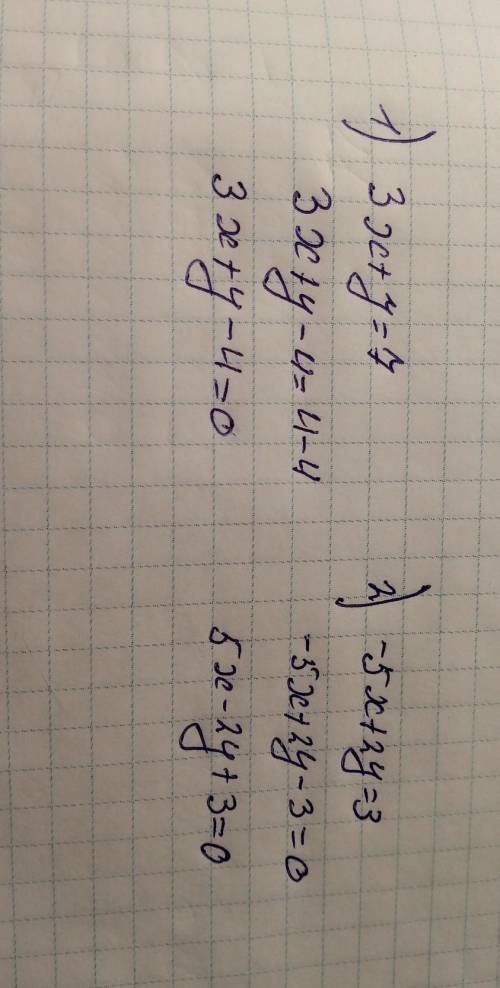 1) 3x+y=4
3x+y-4=4-4
3x+y-4=0
2) -5x+2y=3
-5x+2y-3=0
5x-2y+3=0